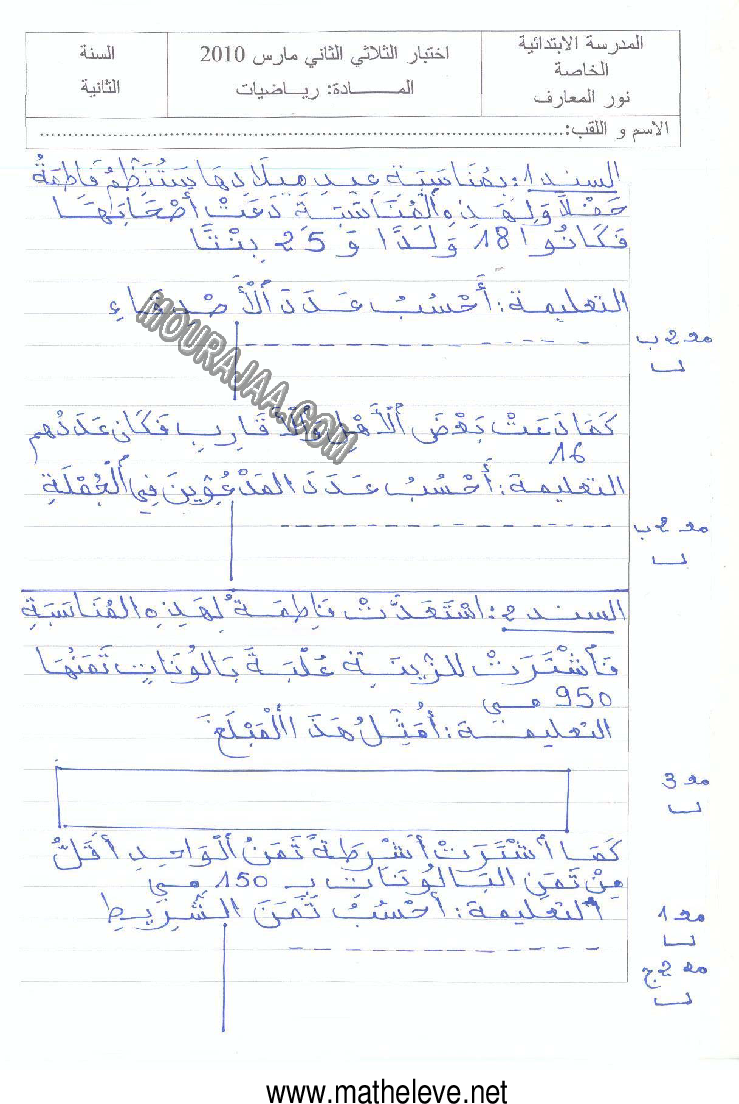 المدرسة الابتدائية
الخاصة
نور المعارف
اختبار الثلاثي الثاني مارس 2010
المــــادة: رياضيات
السنة
الثانية
الاسم و اللقب:
السند 1: بِمُنَاسَبَةِ عِيدِ مِيلَادِهَا سَتُنَظِّمُ فَاطِمَةُ
حَفْلًا وَلِهَذِهِ الْمُنَاسَبَةِ دَعَتْ أَصْحَابَهَا
فَكَانُوا 18 وَلَدًا وَ 25 بِنْتًا
التعليمة: أَحْسُبُ عَدَدَ الْأَصْدِقَاءِ
مع 2 ب
MOURAJAA.COM
كَمَا دَعَتْ بَعْضَ الْأَهْلِ وَالْأَقَارِبِ فَكَانَ عَدَدُهُمْ
16
التعليمة: أَحْسُبُ عَدَدَ المَدْعُوِّينَ فِي الْجُمْلَةِ
مع 2 ب
السند 2: اسْتَعَدَّتْ فَاطِمَةُ لِهَذِهِ المُنَاسَبَةِ
فَاشْتَرَتْ للزِّينَةِ عُلْبَةَ بَالُونَاتٍ ثَمَنُهَا
950 مي
التعليمة: أُمَثِّلُ هَذَا الْمَبْلَغَ
مع 3
كَمَا اشْتَرَتْ أَشْرِطَةً ثَمَنُ الْوَاحِدِ أَقَلُّ
مِنْ ثَمَنِ البَالُونَاتِ بِـ 150 مي
التعليمة: أَحْسُبُ ثَمَنَ الشَّرِيطِ
مع 1
مع 2 ج
www.matheleve.net